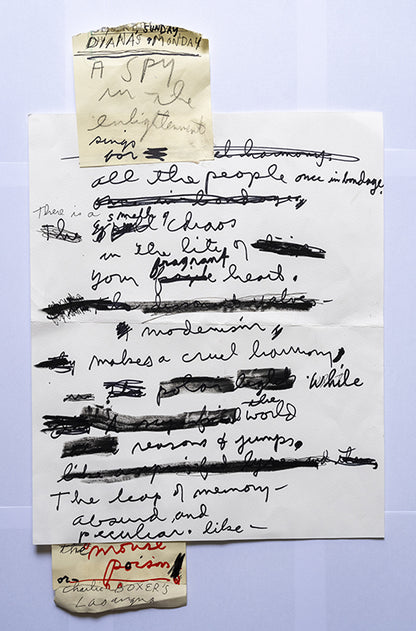 SUNDAY
DYANA'S + MONDAY
A SPY
in the
enlightenment
sings
for
cruel harmony.
all the people once in bondage.
There is a smell of
chaos
in the life of
fragrant
your heart.
modernism,
makes a cruel harmony,
the polar light while
the
world
reasons & jumps.
The leap of memory—
absurd and
peculiar. like—
the mouse
poison
or
charlie BOXER'S
Lasagna